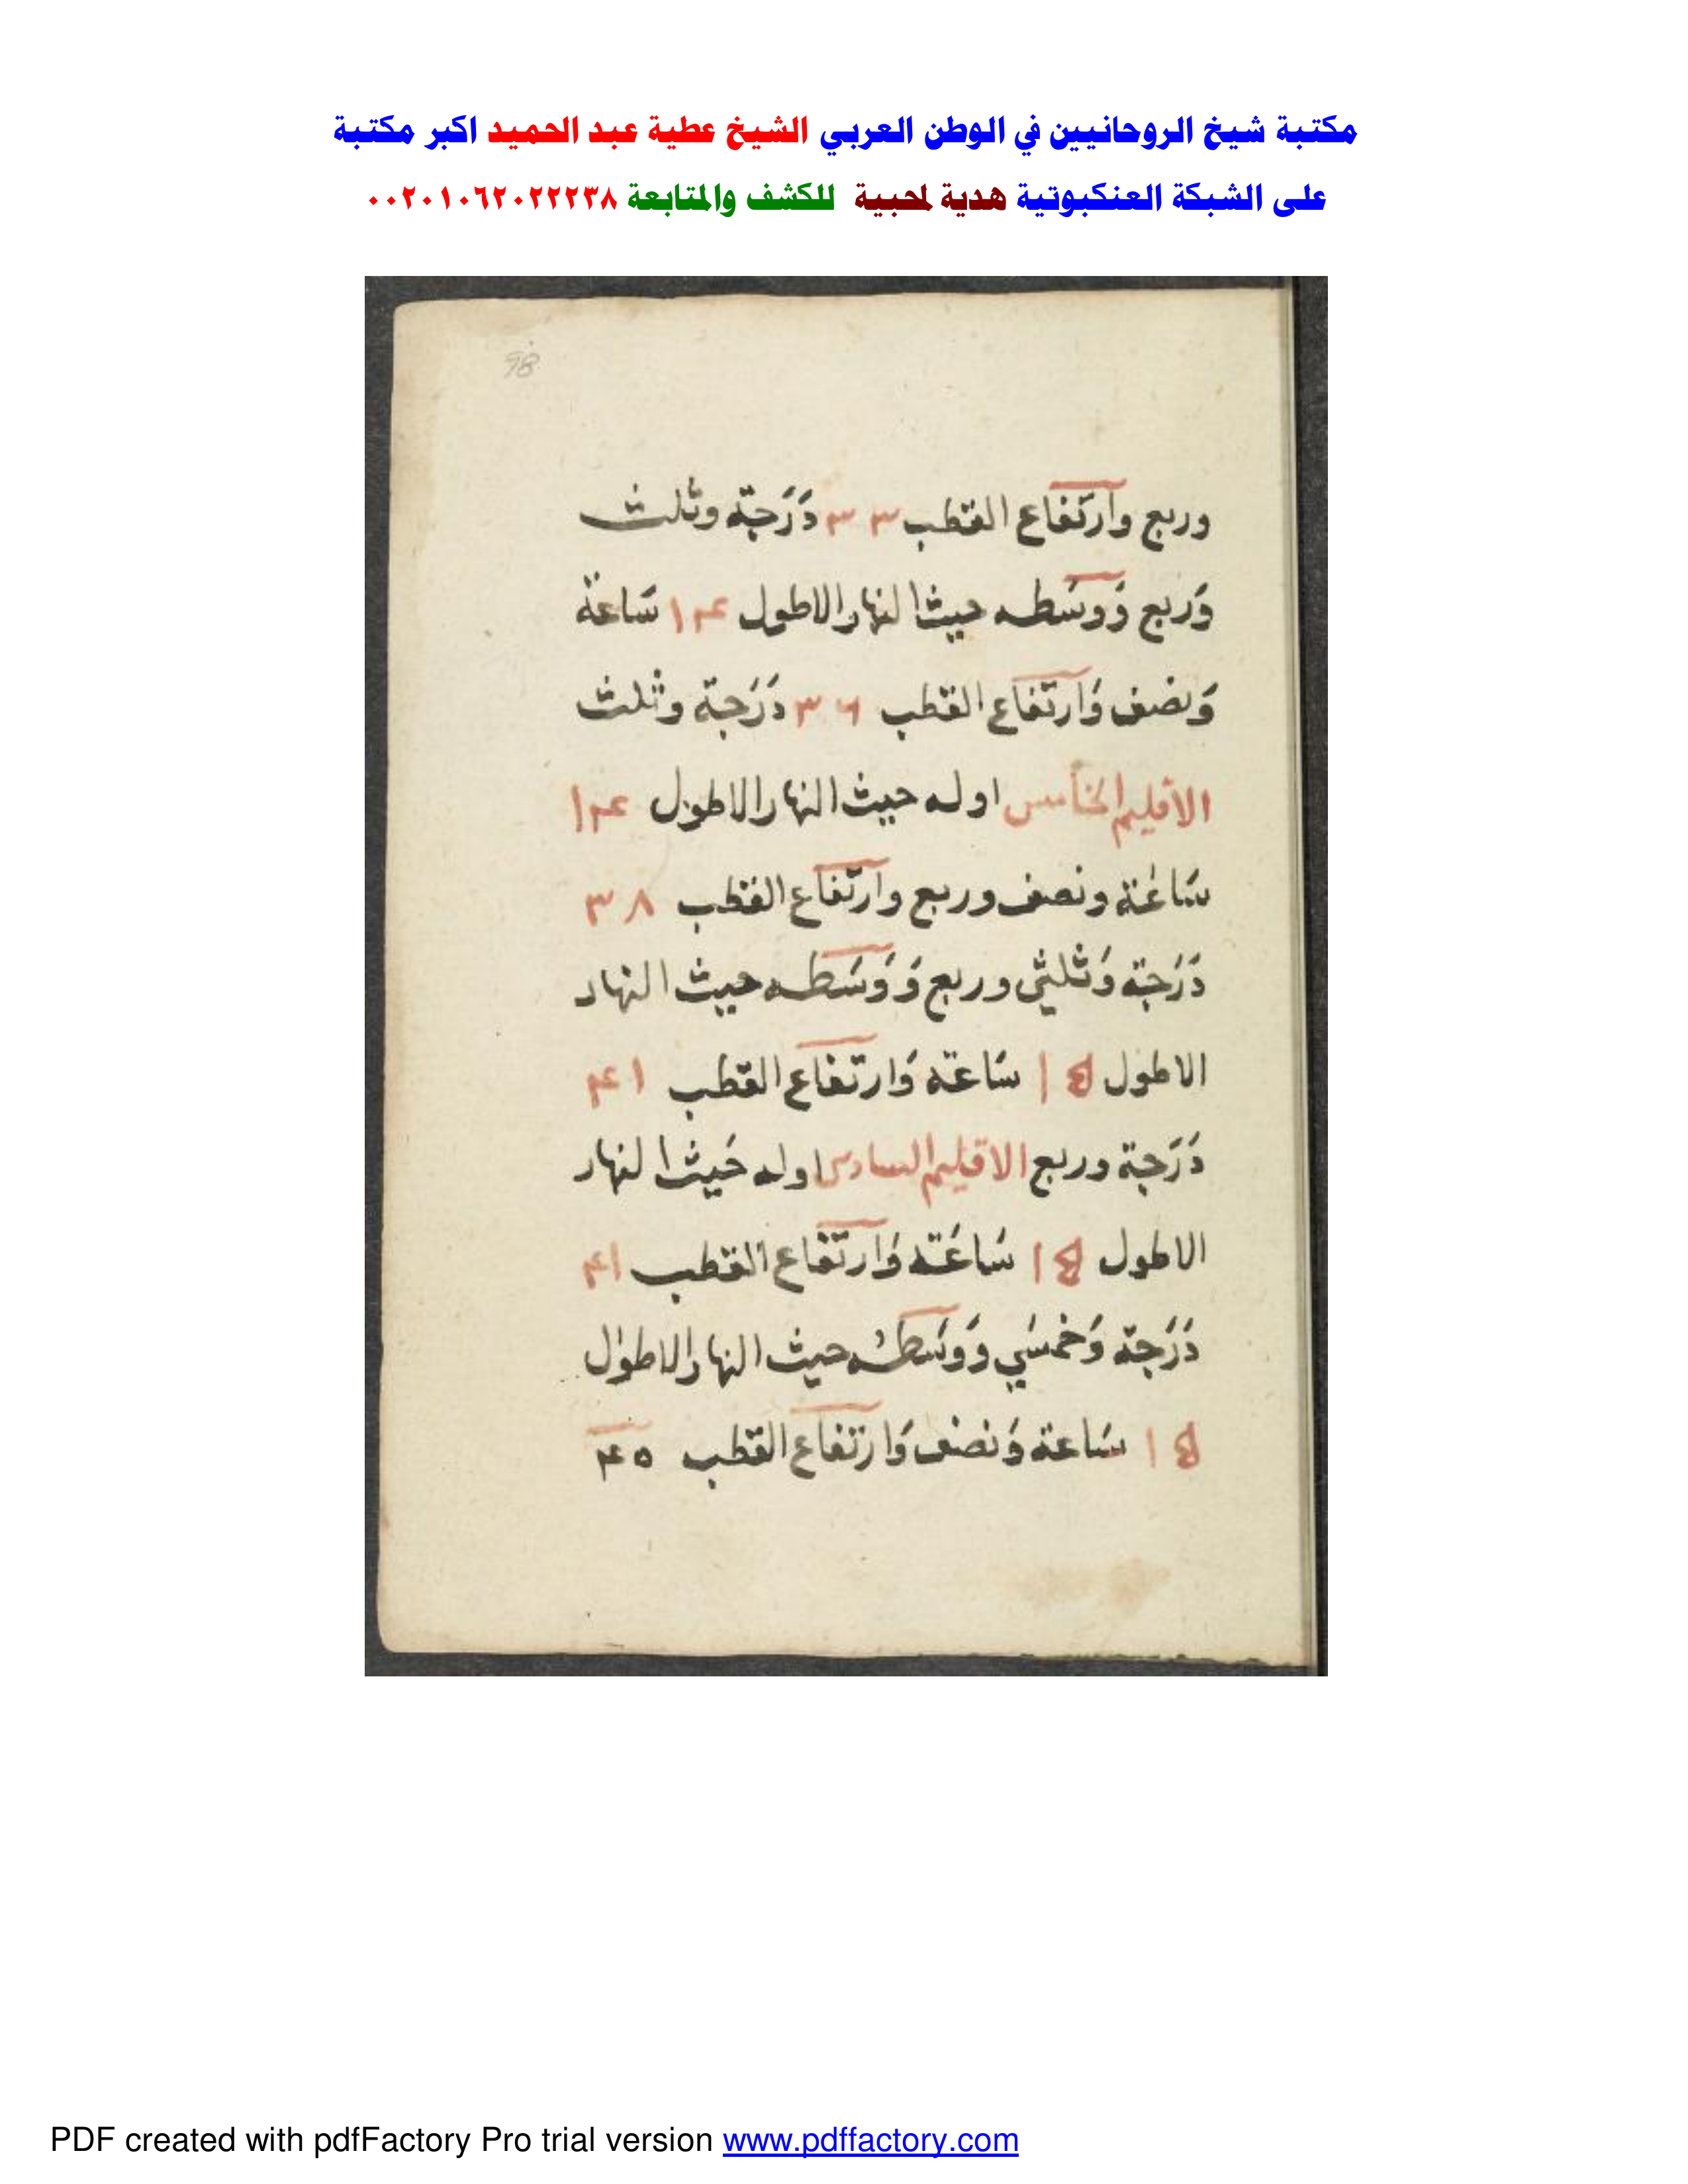 مكتبة شيخ الروحانيين في الوطن العربي الشيخ عطية عبد الحميد اكبر مكتبة
على الشبكة العنكبوتية هدية لمحبية للكشف والمتابعة ٠٠٢٠١٠٦٢٠٢٢٢٣٨
98
وربع وآرتفاع القطب ٣٣ دَرَجة وثلث
وَربع وَوسَطه حيث النهار الاطول ١٤ سَاعة
وَنصف وَآرتفاع القطب ٣٦ دَرَجة وثلث
الاقليم الخامس اوله حيث النهار الاطول ١٤
سَاعَة ونصف وربع وآرتفاع القطب ٣٨
دَرَجة وَثلثي وربع وَوَسَطه حيث النهار
الاطول ١٥ سَاعة وَارتفاع القطب ٤١
دَرَجة وربع الاقليم السادس اوله حَيث النهار
الاطول ١٥ سَاعَة وَآرتفاع القطب ٤١
دَرَجة وَخمسَي وَوسَطهُ حيث النهار الاطول
١٥ سَاعة وَنصف وَارتفاع القطب ٤٥
PDF created with pdfFactory Pro trial version www.pdffactory.com